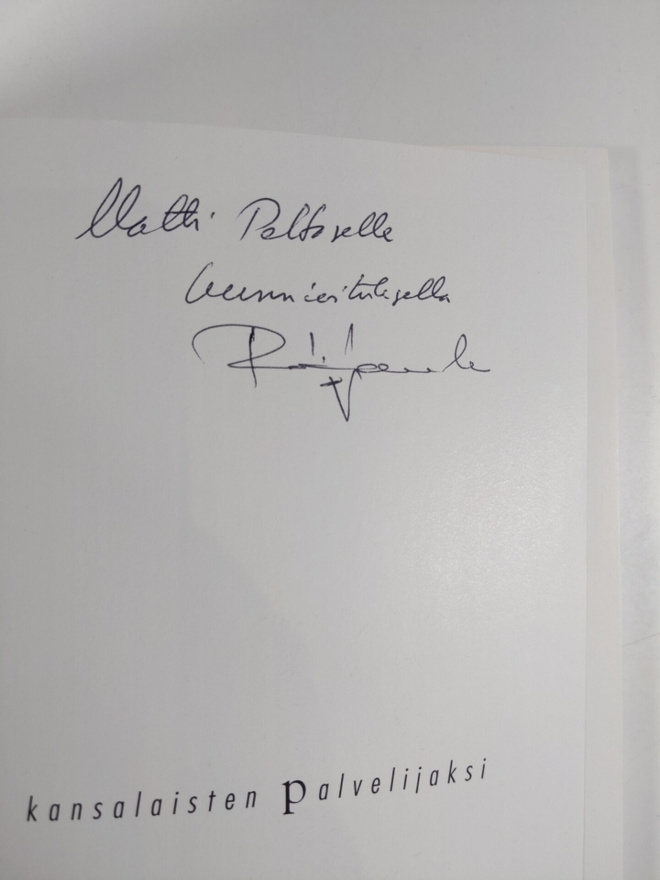 Matti Peltoselle
kunnioituksella
kansalaisten palvelijaksi